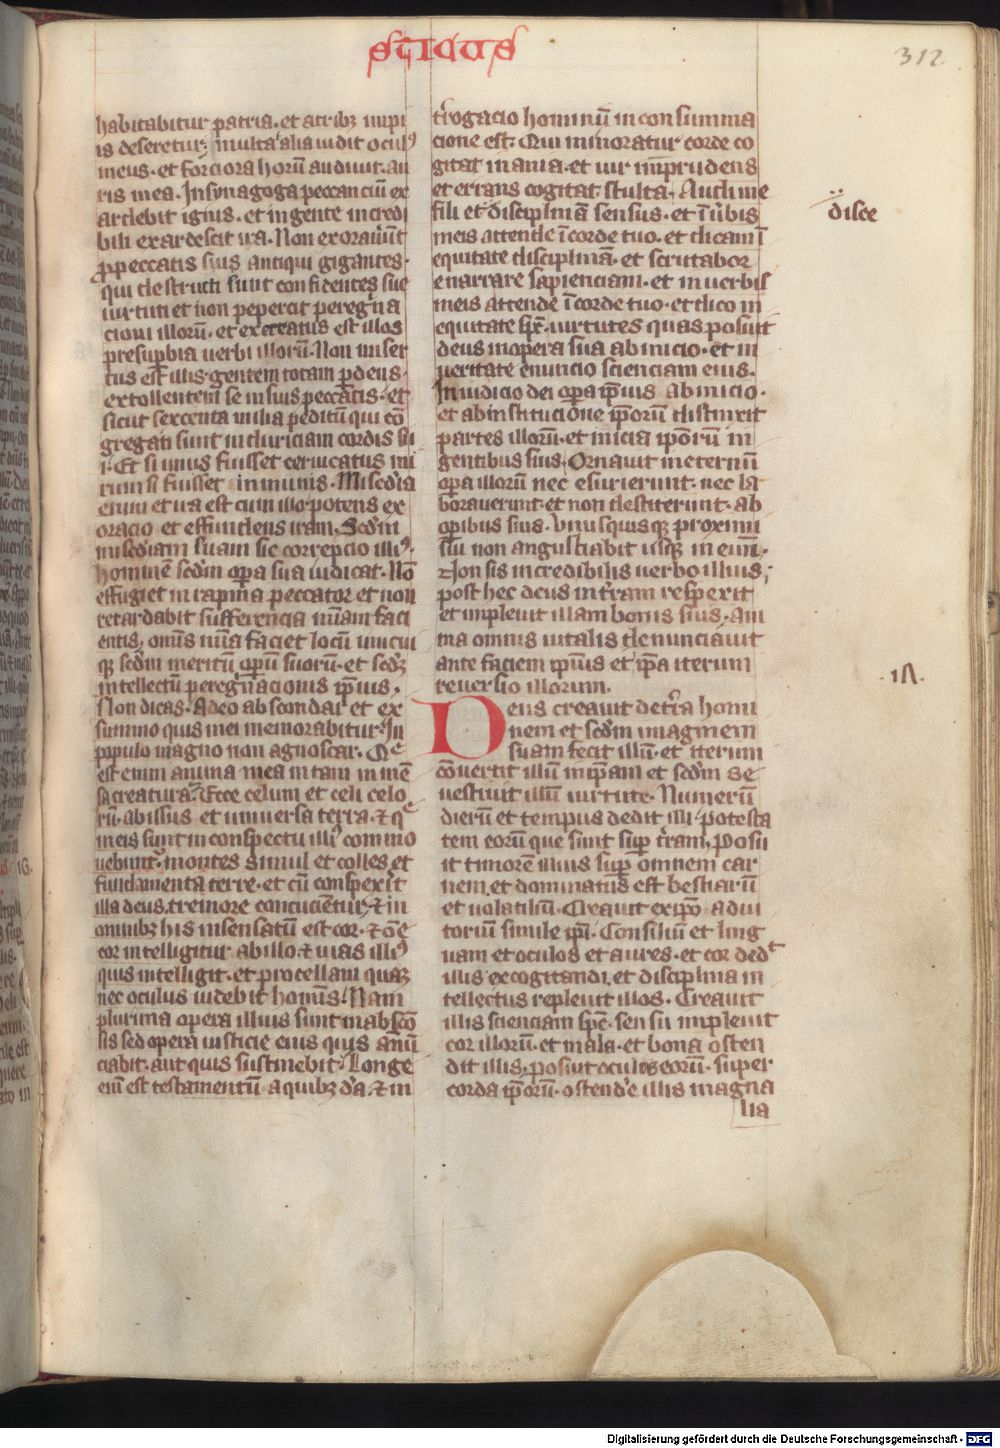 sticus
312
habitabitur patria. et atribꝫ impi
is deseretur; multa alia uidit oculꝰ
meus. et forciora horū audiuit. au
ris mea. In synagoga peccanciū ex
ardebit ignis. et in gente incredi
bili exardescit ira. Non exorauūt
ꝓ peccatis suis antiqui gigantes.
qui destructi sunt confidentes sue
uirtuti et non pepercit peregrina
cioni illorū. et execratus est illos
pre suꝑbia uerbi illorū. Non miser
tus est illis. gentem totam ꝑdens.
extollentem se in suis peccatis. et
sicut sexcenta milia peditū qui cō
gregati sunt in duriciam cordis su
i. Et si unus fuisset ceruicatus mi
rum si fuisset inmunis. Miscd̄ia
enim et ira est cum illo. potens ex
oracio et effundens iram. Scd̄m
misc̄diam suam sic correpcio illiꝰ.
hominē scd̄m oꝑa sua iudicat. Nō
effugiet in rapina peccator et non
retardabit sufferencia mīam faci
entis; omīs mīa faciet locū unicui
qꝫ scd̄m meritū oꝑum suorū. et scd̄ꝫ
intellectū peregrinacionis ip̄ius.
Non dicas. Adeo abscondar et ex
summo quis mei memorabitur? In
populo magno non agnoscar. Que
est enim anima mea in tam inmē
sa creatura? Ecce celum et celi celo
rū. abissus et uniuersa terra. et que
in eis sunt in conspectu illiꝰ commo
uebunt᷑. montes simul et colles et
fundamenta terre. et cū conspexerit
illa deus. tremore concucientur. et in
omnibꝫ his insensatū est cor. et oē
cor intelligitur ab illo. et uias illiꝰ
quis intelligit. et procellam quaꝫ
nec oculus uidebit homīs. Nam
plurima opera illius sunt in abscō
sis sed opera iusticie eius quis ānū
ciabit. aut quis sustinebit? Longe
enī est testamentū a quibꝫdā. et in
t̄rogacio hominū in consumma
cione est. Qui minoratur corde co
gitat inania. et uir imprudens
et errans cogitat stulta. Audi me
fili et disciplinā sensus. et ī ūbis
disce
meis attende ī corde tuo. et dicam ī
equitate disciplinā. et scrutabor
enarrare sapienciam. et in uerbis
meis attende ī corde tuo. et dico in
equitate sp̄c. uirtutes quas posuit
deus in opera sua ab inicio. et in
ueritate enuncio scienciam eius.
In iudicio dei oꝑa ip̄ius ab inicio.
et ab institucione ip̄orū distinxit
partes illorū. et inicia ip̄orū in
gentibus suis. Ornauit in eternū
oꝑa illorū nec esurierunt. nec la
borauerunt. et non destiterunt. ab
oꝑibus suis. Vnusquisqꝫ proximū
sibi non angustiabit usqꝫ in euū.
Non sis incredibilis uerbo illius;
post hec deus in t̄ram respexit
et impleuit illam bonis suis. ani
ma omnis uitalis denunciauit
ante faciem ip̄ius et ip̄a iterum
reuersio illorum.
Deus creauit de t̄ra homi
nem et scd̄m imaginem
suam fecit illū. et iterum
cōuertit illū in ip̄am et scd̄m se
uestiuit illū uirtute. Numerū
dierū et tempus dedit illi. potesta
tem eorū que sunt suꝑ t̄ram. Posu
it timorē illius suꝑ omnem car
nem. et dominatus est bestiarū
et uolatiliū. Creauit ex ip̄o adiu
torium simile ip̄i. Consiliū et ling
uam et oculos et aures. et cor dedᵗ
illis excogitandi. et disciplina in
tellectus repleuit illos. Creauit
illis scienciam sp̄c. sensu impleuit
cor illorū. et mala. et bona osten
dit illis. posuit oculos eorū. super
corda ip̄orū. ostende illis magna
lia
Digitalisierung gefördert durch die Deutsche Forschungsgemeinschaft - DFG